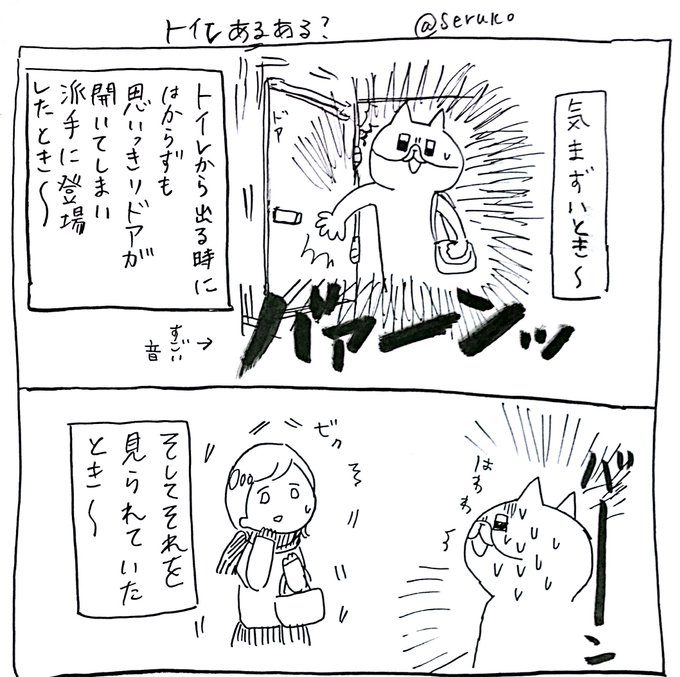 トイレあるある?
@seruko
気まずいとき〜
ドア
トイレから出る時に
はからずも
思いっきりドアが
開いてしまい
派手に登場
したとき〜
バァーンッ
すごい
音
→
バーン
はわわ
ビクッ
そしてそれを
見られていた
とき〜